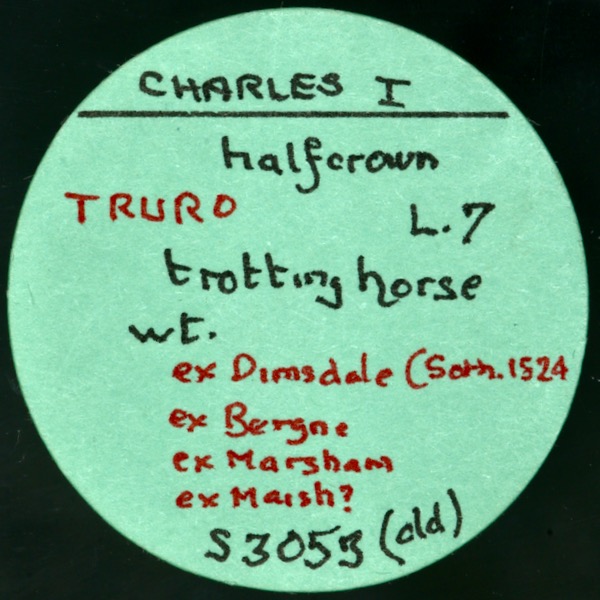 CHARLES I
halfcrown
TRURO
L.7
trotting horse
wt.
ex Dimsdale (Soth. 1824
ex Bergne
ex Marsham
ex Marsh?
S3053 (old)